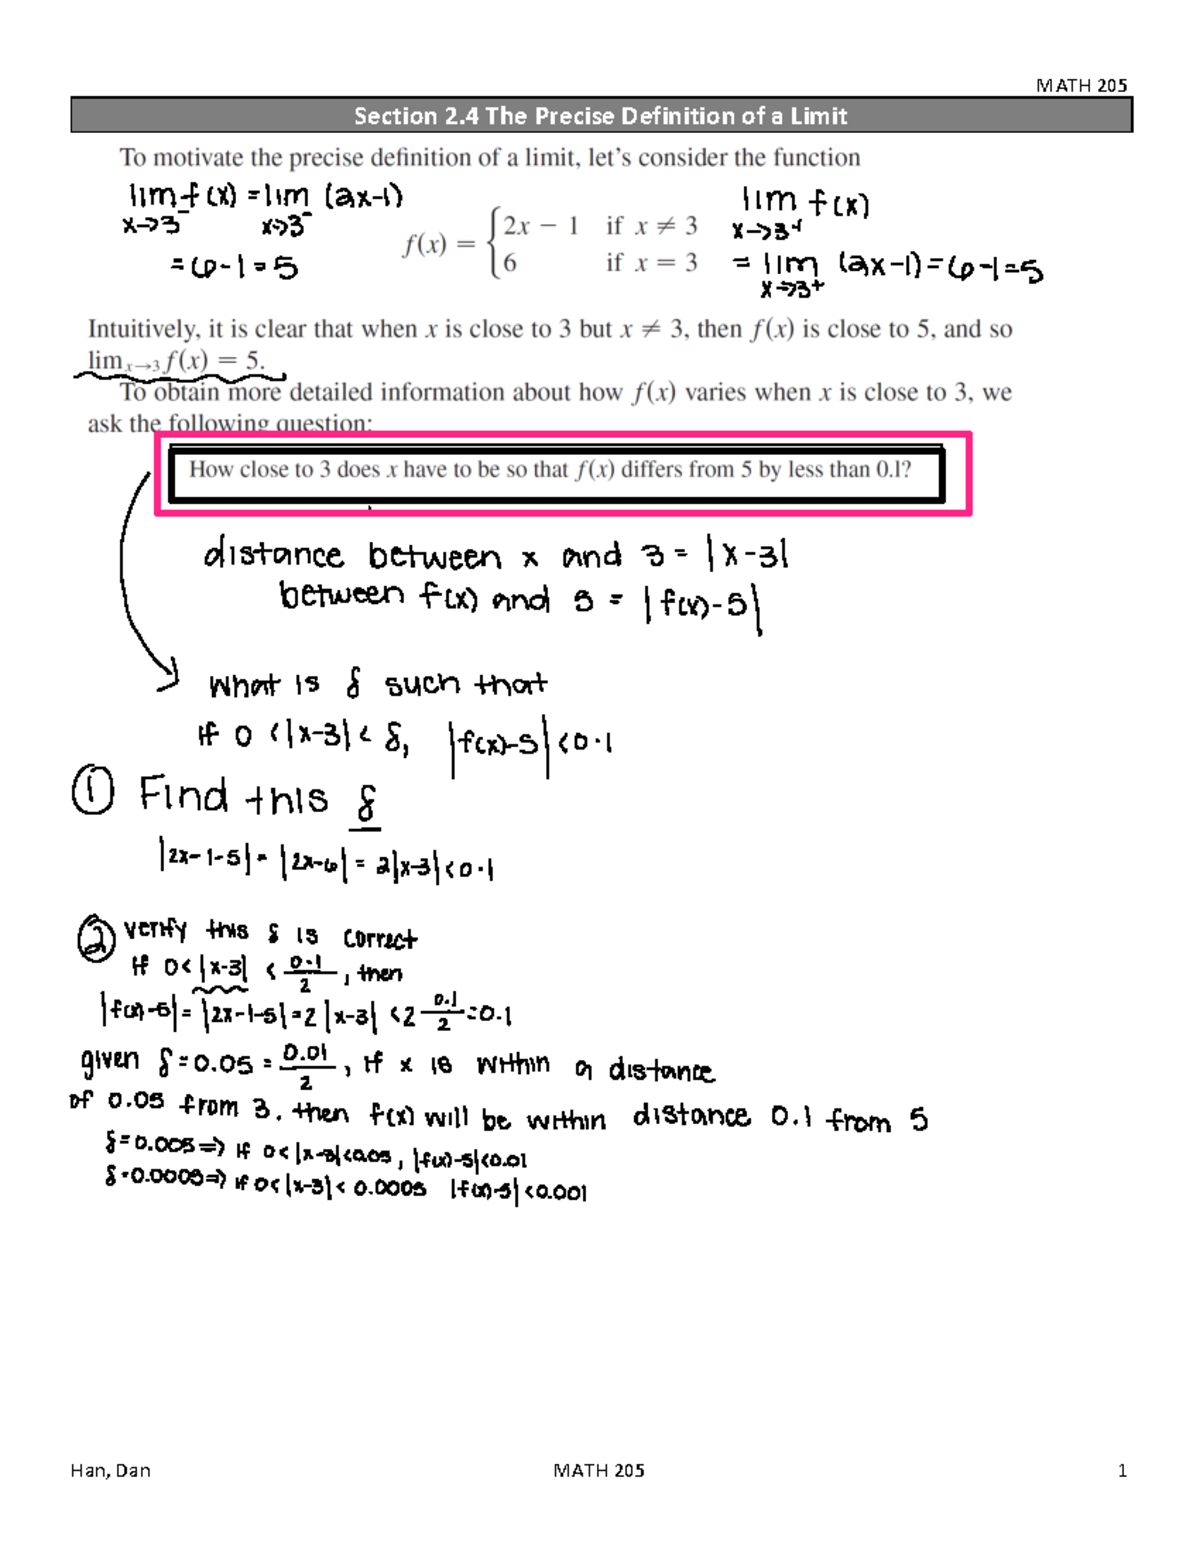 MATH 205
Section 2.4 The Precise Definition of a Limit
To motivate the precise definition of a limit, let's consider the function
lim f(x) = lim (2x-1)
x→3⁻ x→3⁻
= 6-1 = 5
f(x) = { 2x − 1 if x ≠ 3
6 if x = 3
lim f(x)
x→3⁺
= lim (2x-1) = 6-1 = 5
x→3⁺
Intuitively, it is clear that when x is close to 3 but x ≠ 3, then f(x) is close to 5, and so
lim x→3 f(x) = 5.
To obtain more detailed information about how f(x) varies when x is close to 3, we
ask the following question:
How close to 3 does x have to be so that f(x) differs from 5 by less than 0.1?
distance between x and 3 = |x-3|
between f(x) and 5 = |f(x)-5|
What is δ such that
if 0 <|x-3|< δ, |f(x)-5| <0.1
① Find this δ
|2x-1-5| = |2x-6| = 2|x-3| <0.1
② verify this δ is correct
If 0< |x-3| < 0.1/2, then
|f(x)-5| = |2x-1-5| = 2|x-3| <2 0.1/2 = 0.1
given δ = 0.05 = 0.01/2, if x is within a distance
of 0.05 from 3, then f(x) will be within distance 0.1 from 5
δ = 0.005 ⇒ if 0< |x-3|<0.05, |f(x)-5|<0.01
δ = 0.0005 ⇒ if 0< |x-3| < 0.0005 |f(x)-5| <0.001
Han, Dan MATH 205 1